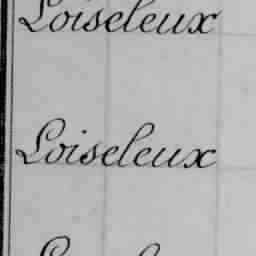 Loiseleux
Loiseleux